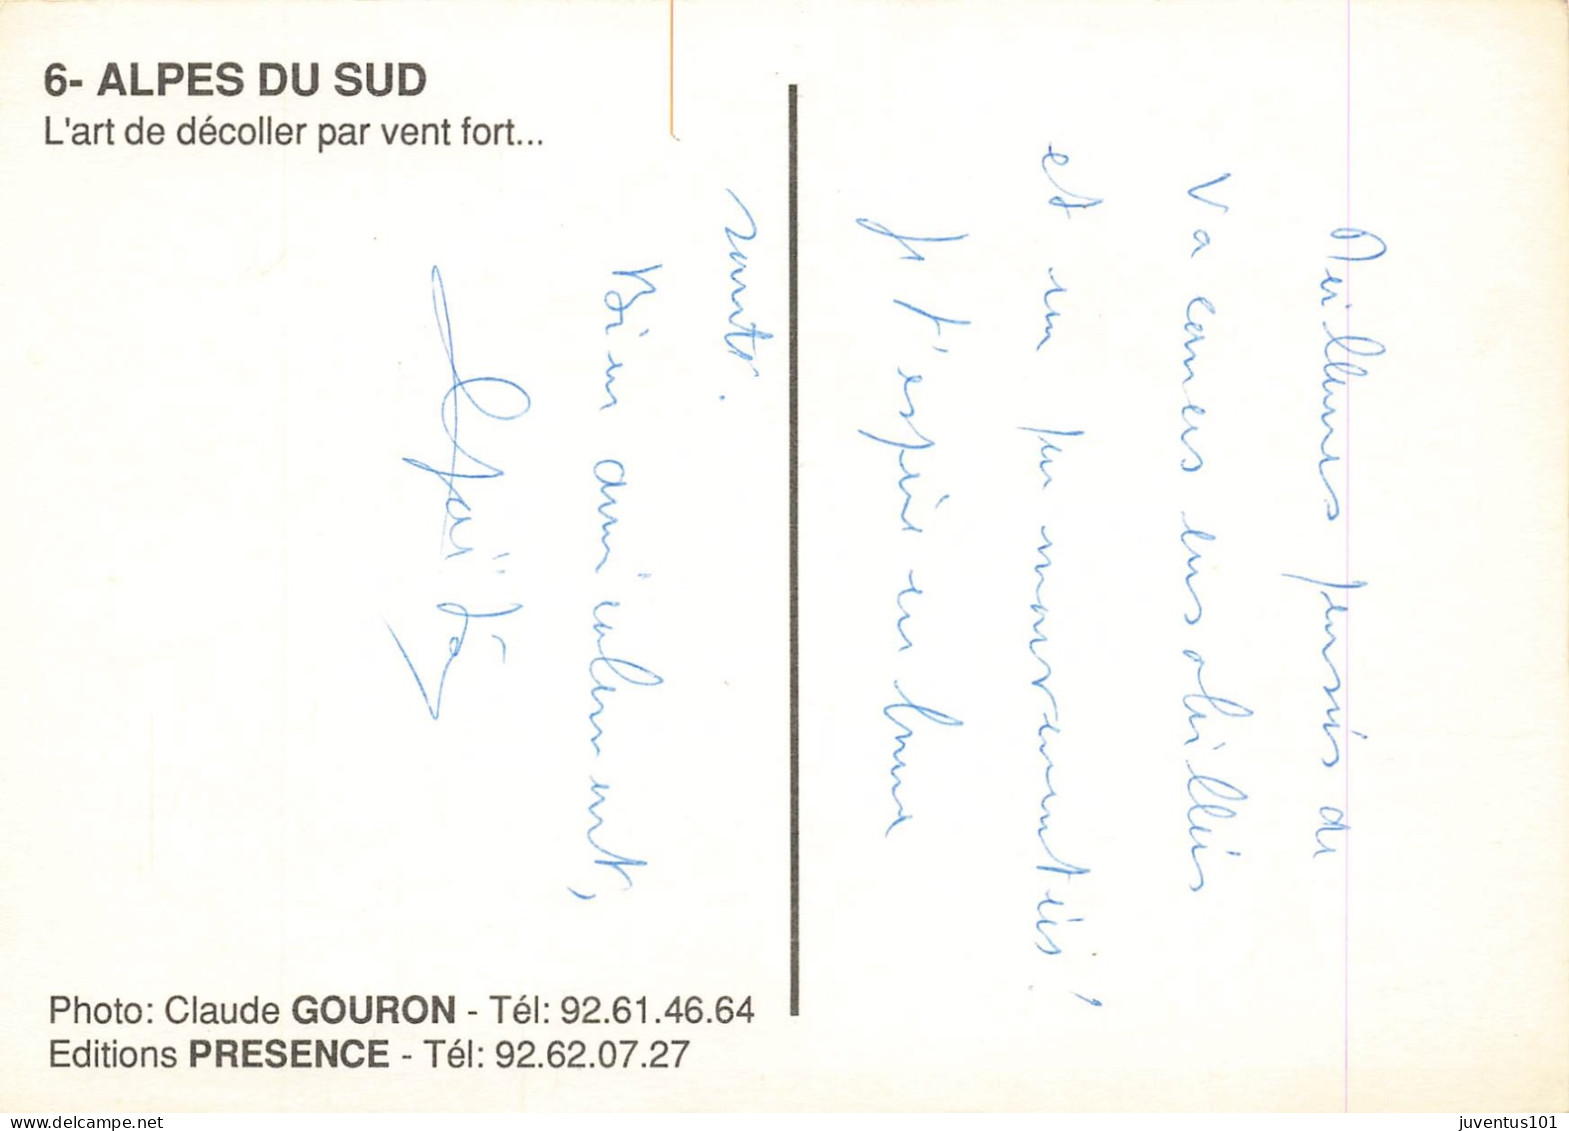 6- ALPES DU SUD
L'art de décoller par vent fort...
Meilleures pensées de
Vacances ensoleillées
et un peu mouvementées!
Je t'espère en bonne
santé.
Bien amicalement,
Photo: Claude GOURON - Tél: 92.61.46.64
Editions PRESENCE - Tél: 92.62.07.27
juventus101